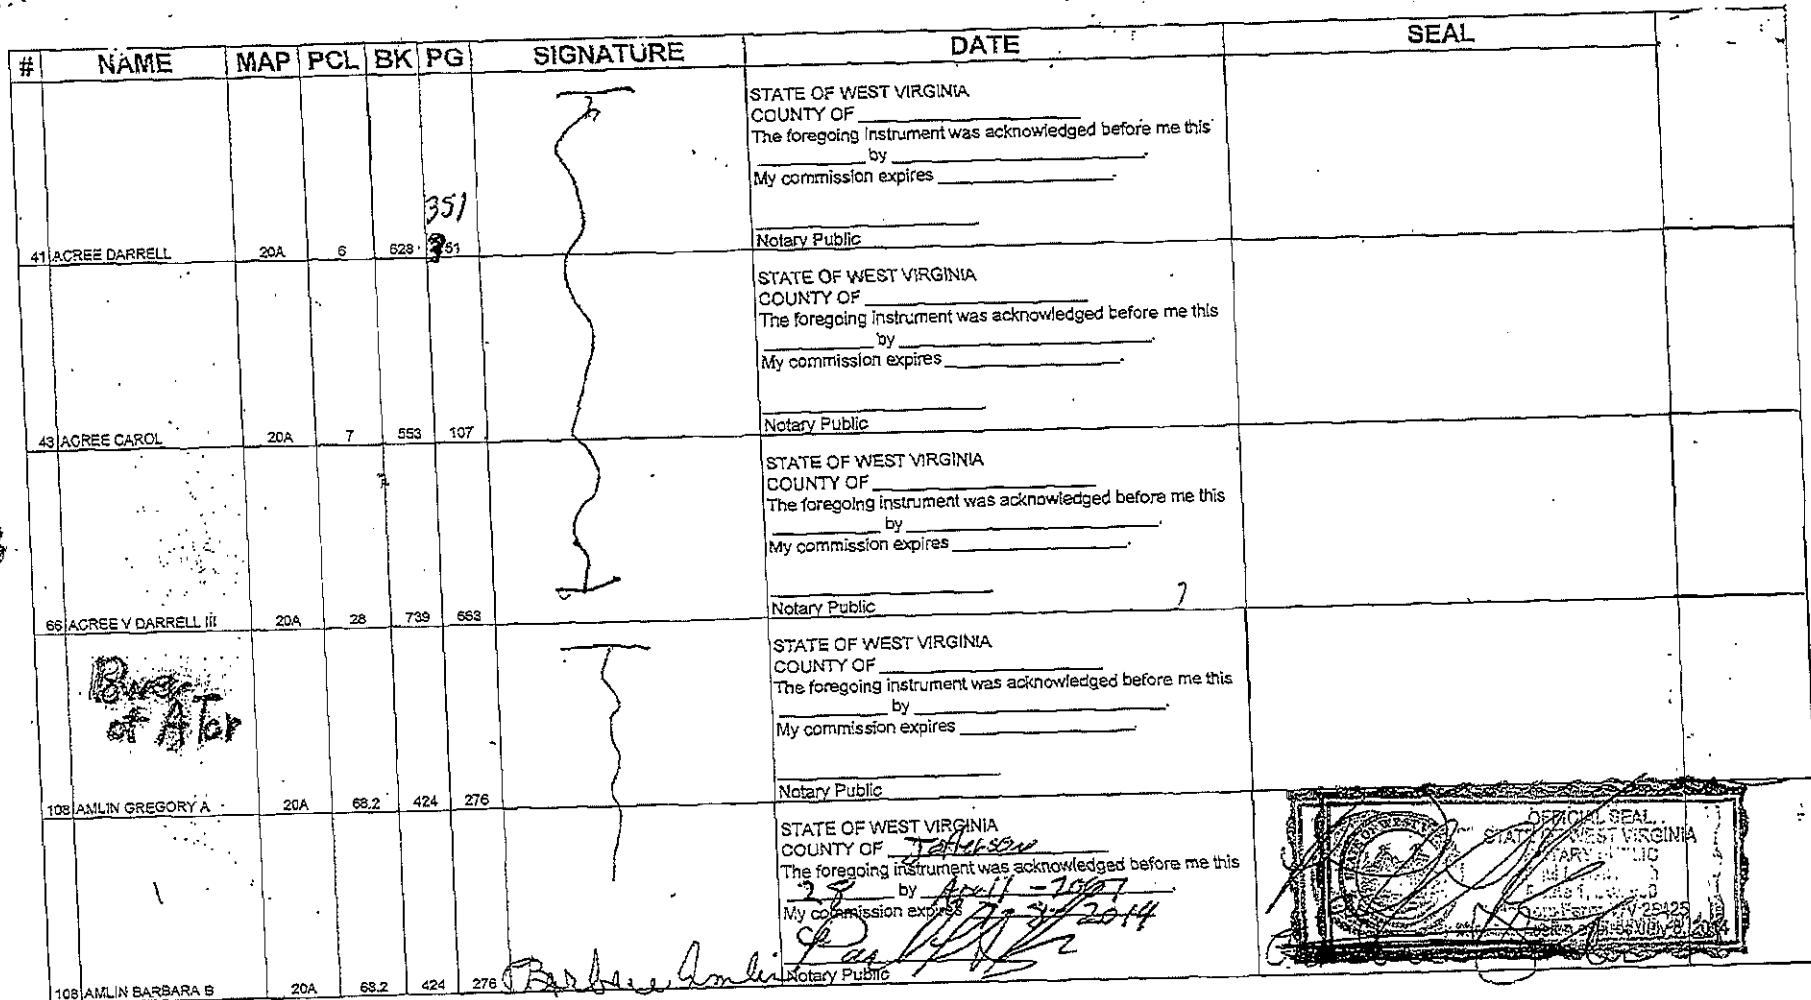 # NAME MAP PCL BK PG SIGNATURE DATE SEAL
STATE OF WEST VIRGINIA
COUNTY OF
The foregoing instrument was acknowledged before me this
by
My commission expires
351
Notary Public
41 ACREE DARRELL 20A 6 628 351
STATE OF WEST VIRGINIA
COUNTY OF
The foregoing instrument was acknowledged before me this
by
My commission expires
Notary Public
43 ACREE CAROL 20A 7 553 107
STATE OF WEST VIRGINIA
COUNTY OF
The foregoing instrument was acknowledged before me this
by
My commission expires
Notary Public
66 ACREE V DARRELL III 20A 28 739 653
STATE OF WEST VIRGINIA
COUNTY OF
The foregoing instrument was acknowledged before me this
by
My commission expires
Power
of ATor
Notary Public
108 AMLIN GREGORY A 20A 68.2 424 276
STATE OF WEST VIRGINIA
COUNTY OF Jefferson
The foregoing instrument was acknowledged before me this
28 by April - 2007
My commission expires 2014
Notary Public
OFFICIAL SEAL
STATE OF WEST VIRGINIA
NOTARY PUBLIC
WV 25425
108 AMLIN BARBARA B 20A 68.2 424 276 Barbara Amlin